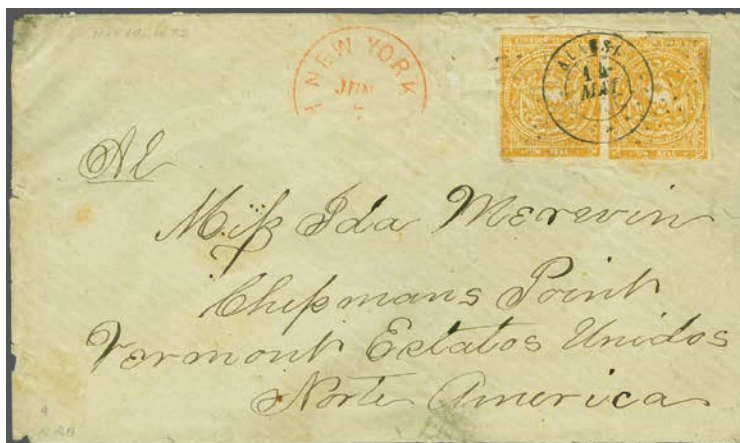 NEW YORK
JUN
ALAUSI
14
MAI
UN REAL
UN REAL
Al
Miss Ida Merevin
Chipmans Point
Vermont Estatos Unidos
Norte America